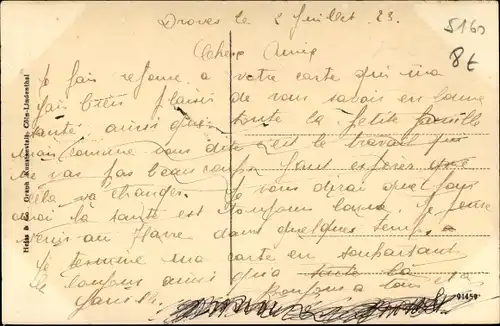 Droves le 2 Juillet 23.
5160
8€
Chers Amis
Je fais reponse a votre carte qui m'a
fais bien plaisir de vous savoir en bonne
santé ainsi que toute la petite famille
mais comme vous dite c'est le travail qui
ne vas pas beaucoup faut esperer que
cela va changer. Je vous dirai que
moi la santé est toujours bonne. Je pense
venir au Havre dans quelques temps.
Je termine ma carte en souhaitant
le bonjour ainsi qu'a toute la
famille. Bonjour a tous
Heiss & Co. Graph. Kunstanstalt, Cöln-Lindenthal
91459